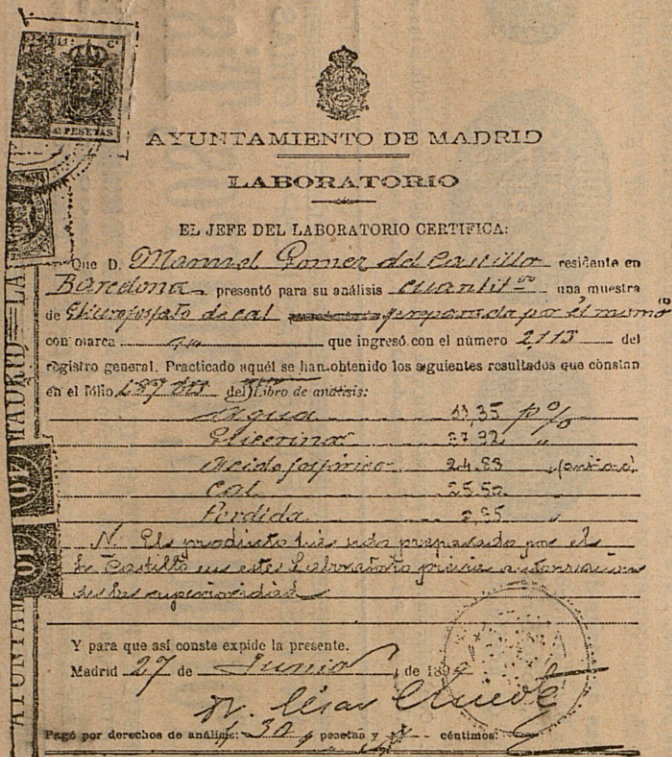 PESETAS
AYUNTAMIENTO DE MADRID
LABORATORIO
EL JEFE DEL LABORATORIO CERTIFICA:
Que D. Manuel Gomez del Castillo residente en
Barcelona presentó para su análisis cuantit.vo una muestra
de Glicerofosfato de cal preparada por él mismo
con marca que ingresó con el número 2113 del
registro general. Practicado aquél se han obtenido los siguientes resultados que constan
en el fólio 187 del Libro de análisis:
Agua 11,35 p%
Glicerina 37.92 "
Acido fosfórico 24.83 "
Cal 25.50
Perdida "
N. El producto há sido preparado por el
Sr Castillo en este Laboratorio prévia autorizacion
de la superioridad
Y para que así conste expide la presente.
Madrid 27 de Junio de 189
Dr. César Chicote
Pagó por derechos de análisis: 30 pesetas y céntimos.
AYUNTAM
MADRID